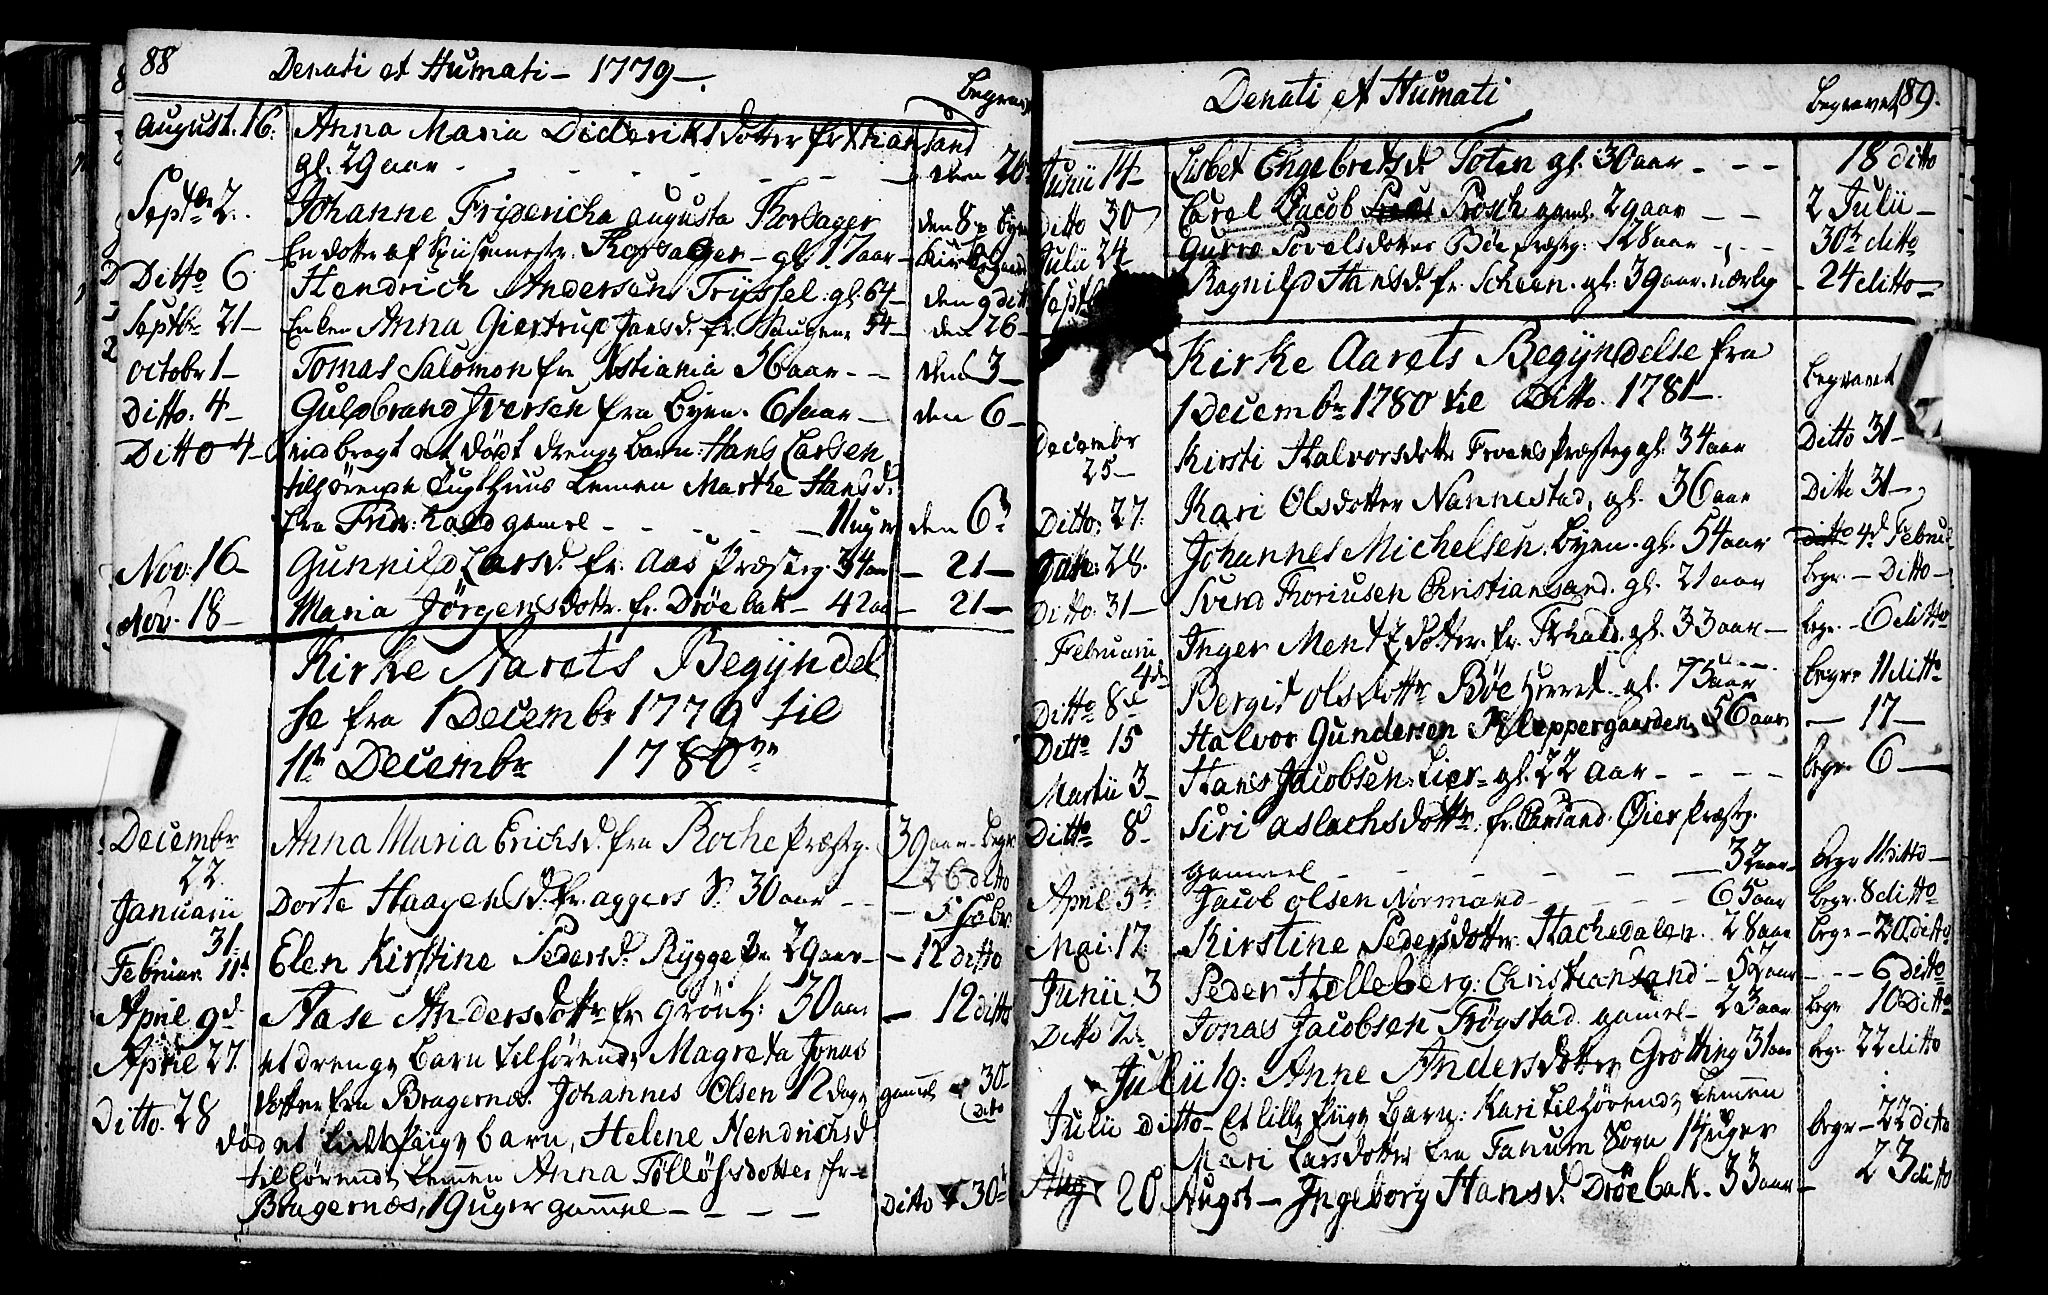 88 Denati et Humati - 1779 -.
August. 16. Anna Maria Dideriksdotter fr Xtiansand
gl. 29 aar - - - - - - - den 20
Septbr 2. Johanne Fridericha Augusta Thorsager den 8 p byens
En dotter af Thorsager - gl. 17 aar - Kirkegaard
Ditto 6 Hendrich Andersen Tryssel gl. 64 - den 9 dito
Septbr 21 - Enken Anna Giertrud Jansd. fr. 54 - den 26 -
Octobr 1 - Tomas Salomon fr. Xstiania 36 aar - - den 3 -
Ditto. 4 - Guldbrand Iversen fra Byen. 61 aar - den 6 -
Ditto 4 - indbragt et dødt drenge barn: Hans Larsen
tilhørende Tugthuus Lemen Marthe Hansd.
fra Fridr: hald gamel - - - - - 11 uger den 6
Nov. 16 - Gunnild Larsd. fr. Aas Præsteg. 34 aar - 21 -
Nov. 18 - Maria Jørgensdottr. fr. Drøebak - 42 aar - 21 -
Kirke Aarets Begyndel
se fra 1 Decembr 1779 til
1te Decembr 1780
Decembr 22. Anna Maria Erichsd. fra Roche Præstg. 39 aar - begr
- 26 ditto
Januarii 31. Dorte Haagensd. fr. aggers S. 30 aar - - - 5 Febr
Februar. 11t Elen Kirstine Pedersd. Rygge Pr 29 aar - - 12 ditto
April 9d Aase Andersdottr fr Grønl: 30 aar - 12 ditto
April 27. et drenge barn tilhørende Magreta Jonas
dotter fra Bragernæs. Johannes Olsen 12 dage gamel 30
dito
Ditto. 28 død et lidet Piige barn, Helene Hendrichsd
tilhørende Lemen Anna Tølløfsdotter fr -
Bragernæs, 19 uger gammel - - - - Ditto 30
Denati et Humati Begravet 89.
Junii 14 - Lisbet Engebretsd. Toten gl. 30 aar - - - 18 ditto
ditto 30 Carel Jacob Prosch gaml. 29 aar - - 2 Julii -
Julii 24 Gurre Povelsdotter Bøe Præstg: 28 aar - - 30 ditto
Septb Ragnild Hansd. fr. Scheen. gl. 39 aar. nærlig - 24 ditto -
Kirke Aarets Begyndelse fra
1 Decembr 1780 til Ditto. 1781 -. begravet
Decembr 25 - Kirsti Halvorsdottr Præsteg gl. 34 aar Ditto 31 -
Ditto. 27. Kari Olsdotter Nannestad, gl. 36 aar Ditto 31 -
Ditto. 28. Johannes Michelsen. byen. gl. 54 aar Ditto 4d Februar
Ditto. 31 - Svend Thoriusen Christiansand. gl. 21 aar begr. - Ditto -
Februarii 4de Inger Mentzdotter. fr. Frhald. gl. 33 aar - begr. - 6 ditto
Ditto 8d Bergit Olsdottr Bøe Herret. gl. 75 aar begr. 11 ditto
Ditto 15 Halvor Gundersen Kleppergaarden 56 aar - 17 -
Martii 3 - Hans Jacobsen Lier - gl. 22 aar - - - - begr. 6 -
Ditto 8 - Siri Aslachsdottr. fr. Chrsand. Øier Præstg.
gammel - - - - - - - 32 aar - begr 11 ditto -
April 5te Jacob Olsen Normand - - - - 65 aar begr. 8 ditto
Mai. 17. Kirstine Pedersdotter Hachedalen. 28 aar begr - 20 ditto
Junii 3 Peder Helleberg. Christiansand - 57 aar - - - 6 Ditto
Ditto 7d. Jonas Jacobsen Trøgstad gamel - 23 aar begr. 10 Ditto
Julii 19: Anne Andersdotter Grøtting 31 aar begr. 22 ditto
Julii ditto - Et lille Pige barn: Kari tilhørende Lemen
Mari Larsdotter fra Fanum Sogn 14 uger begr - 22 ditto
Aug 20 August - Ingeborg Hansd. Drøebak. 33 aar - 23 ditto